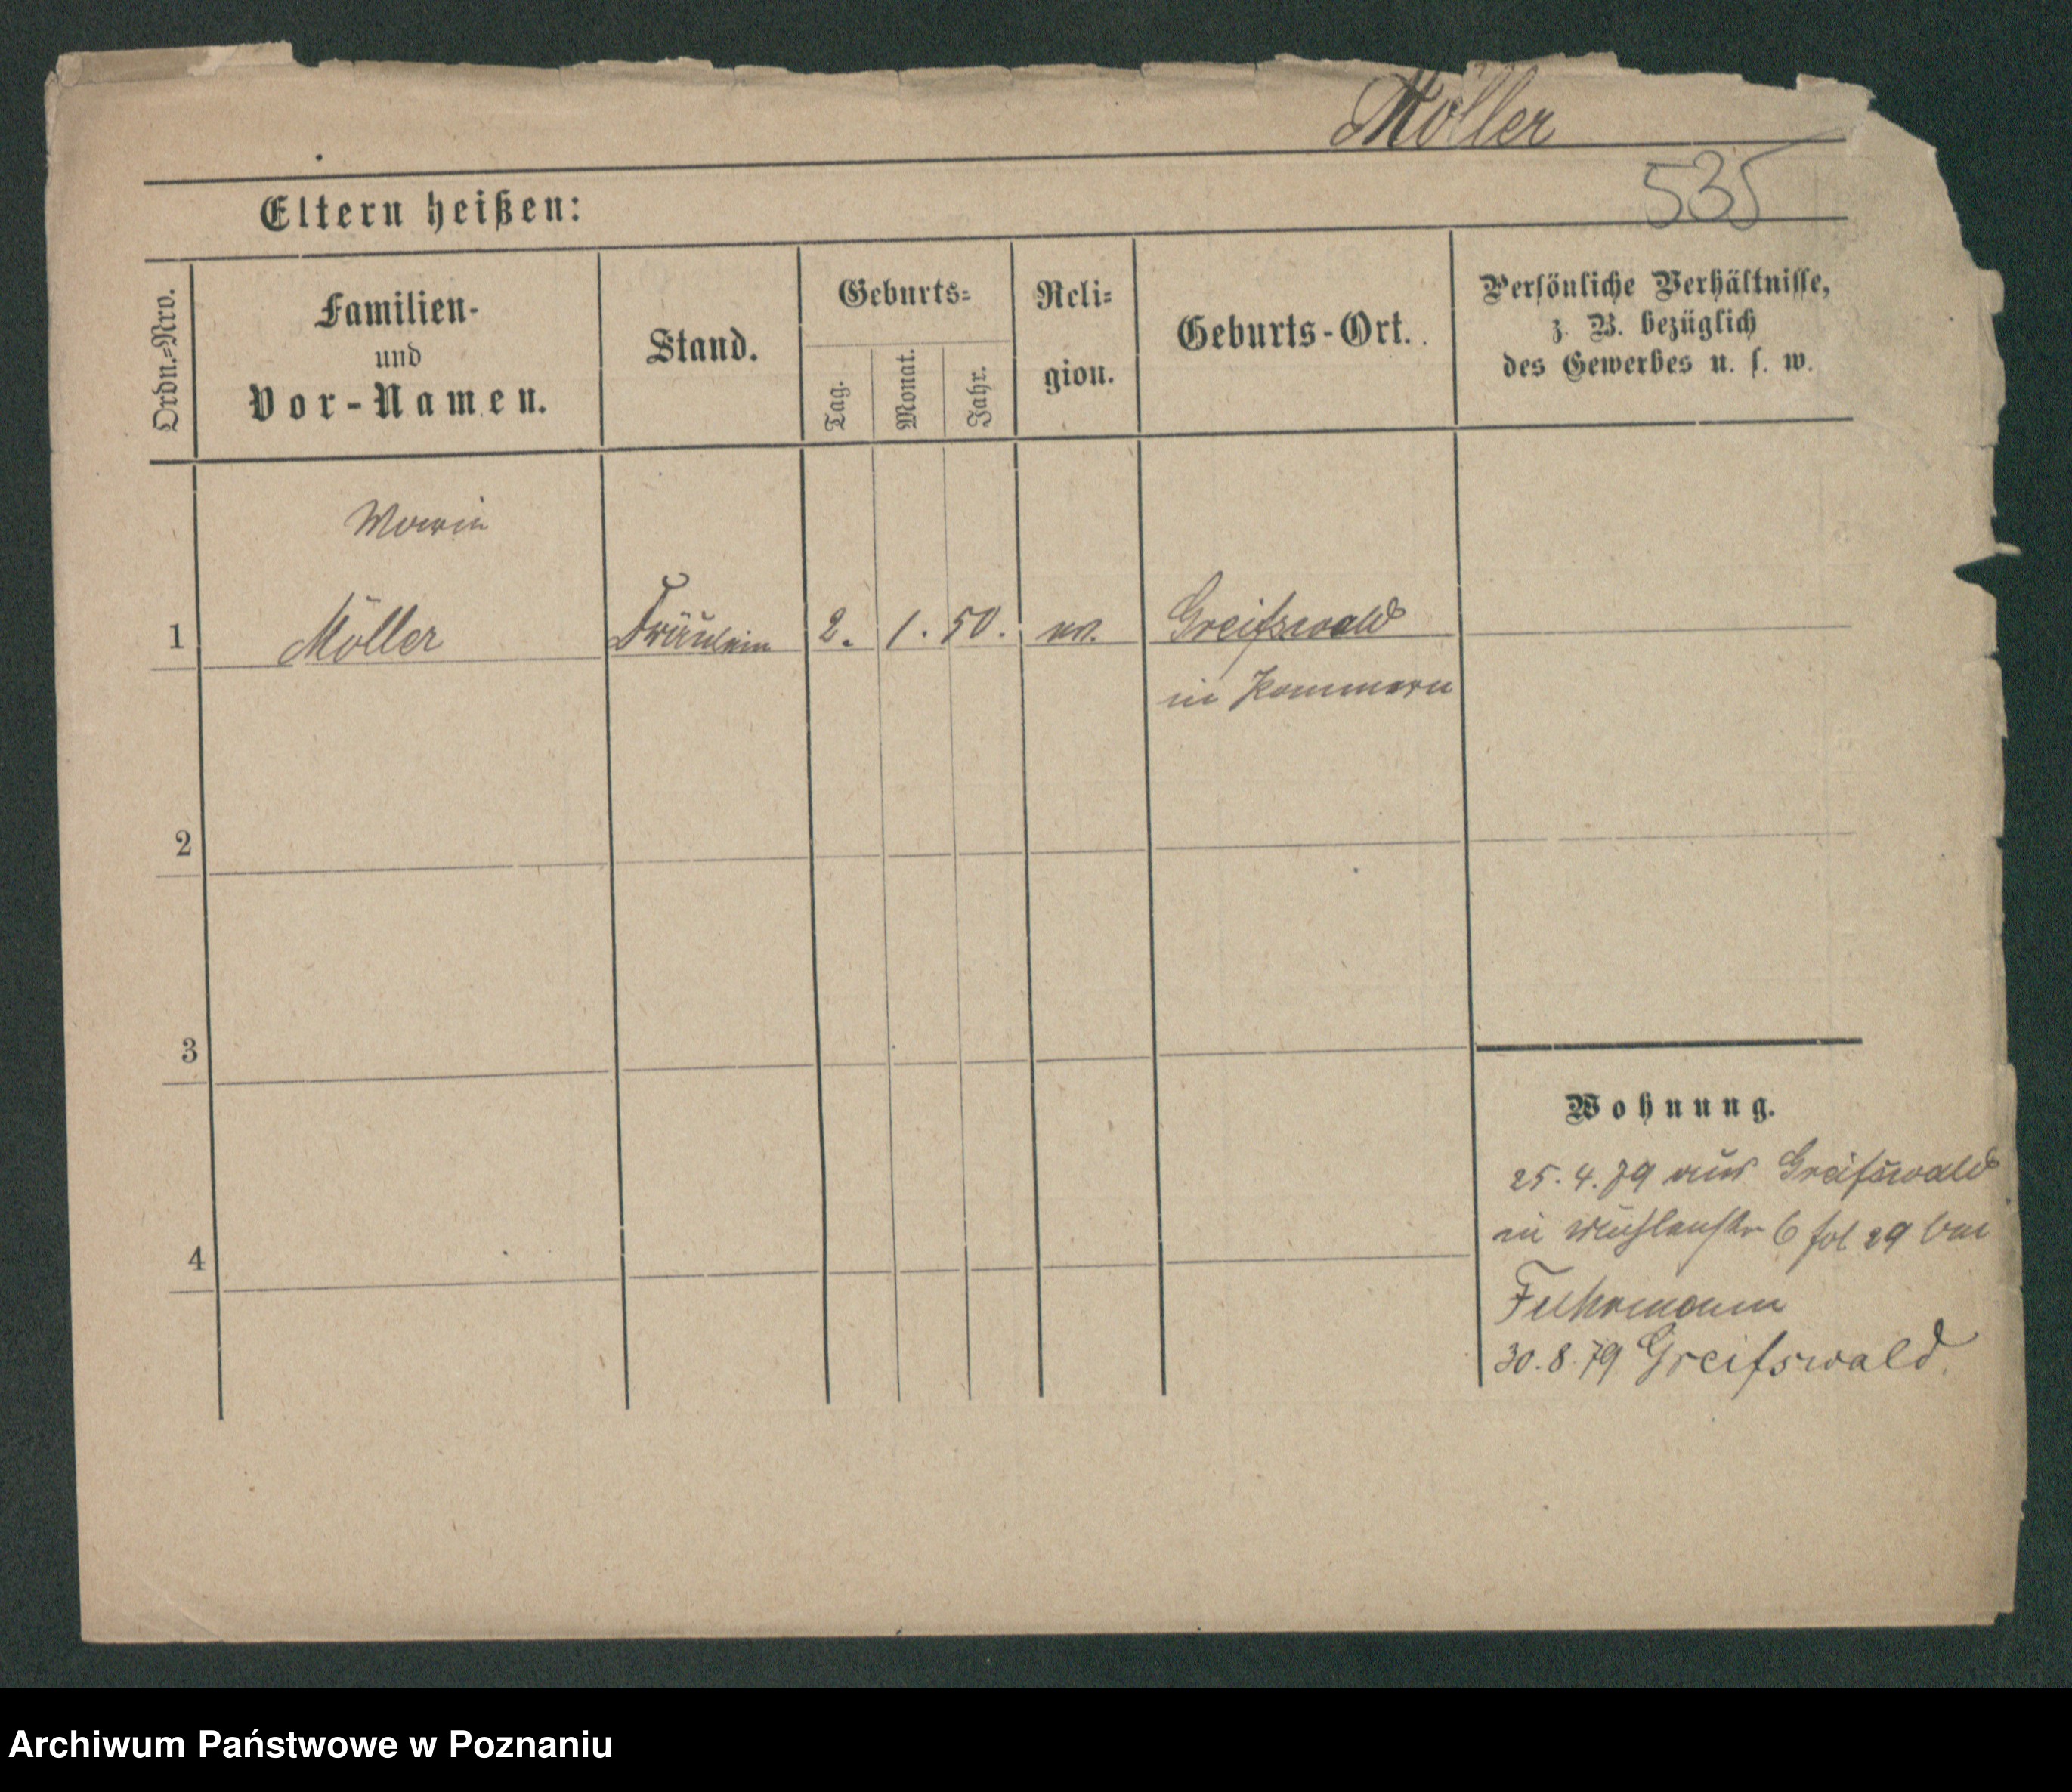 Möller
535
Eltern heißen:
Ordn.=Nro.
Familien-
und
Vor-Namen.
Stand.
Geburts=
Tag.
Monat.
Jahr.
Reli=
gion.
Geburts-Ort.
Persönliche Verhältnisse,
z. B. bezüglich
des Gewerbes u. s. w.
Marie
1 Möller Fräulein 2. 1. 50. ev. Greifswald
in Pommern
2
3
4
Wohnung.
25. 4. 79 aus Greifswald
in Mühlenstr 6 fol 29 bei
Fuhrmann
30. 8. 79 Greifswald.
Archiwum Państwowe w Poznaniu